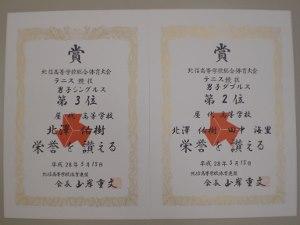 賞
北信高等学校総合体育大会
テニス競技
男子シングルス
第3位
屋代高等学校
北澤 佑樹
栄誉を讃える
平成28年5月15日
北信高等学校体育連盟
会長 山岸重文
賞
北信高等学校総合体育大会
テニス競技
男子ダブルス
第2位
屋代高等学校
北澤 佑樹 田中 海里
栄誉を讃える
平成28年5月15日
北信高等学校体育連盟
会長 山岸重文